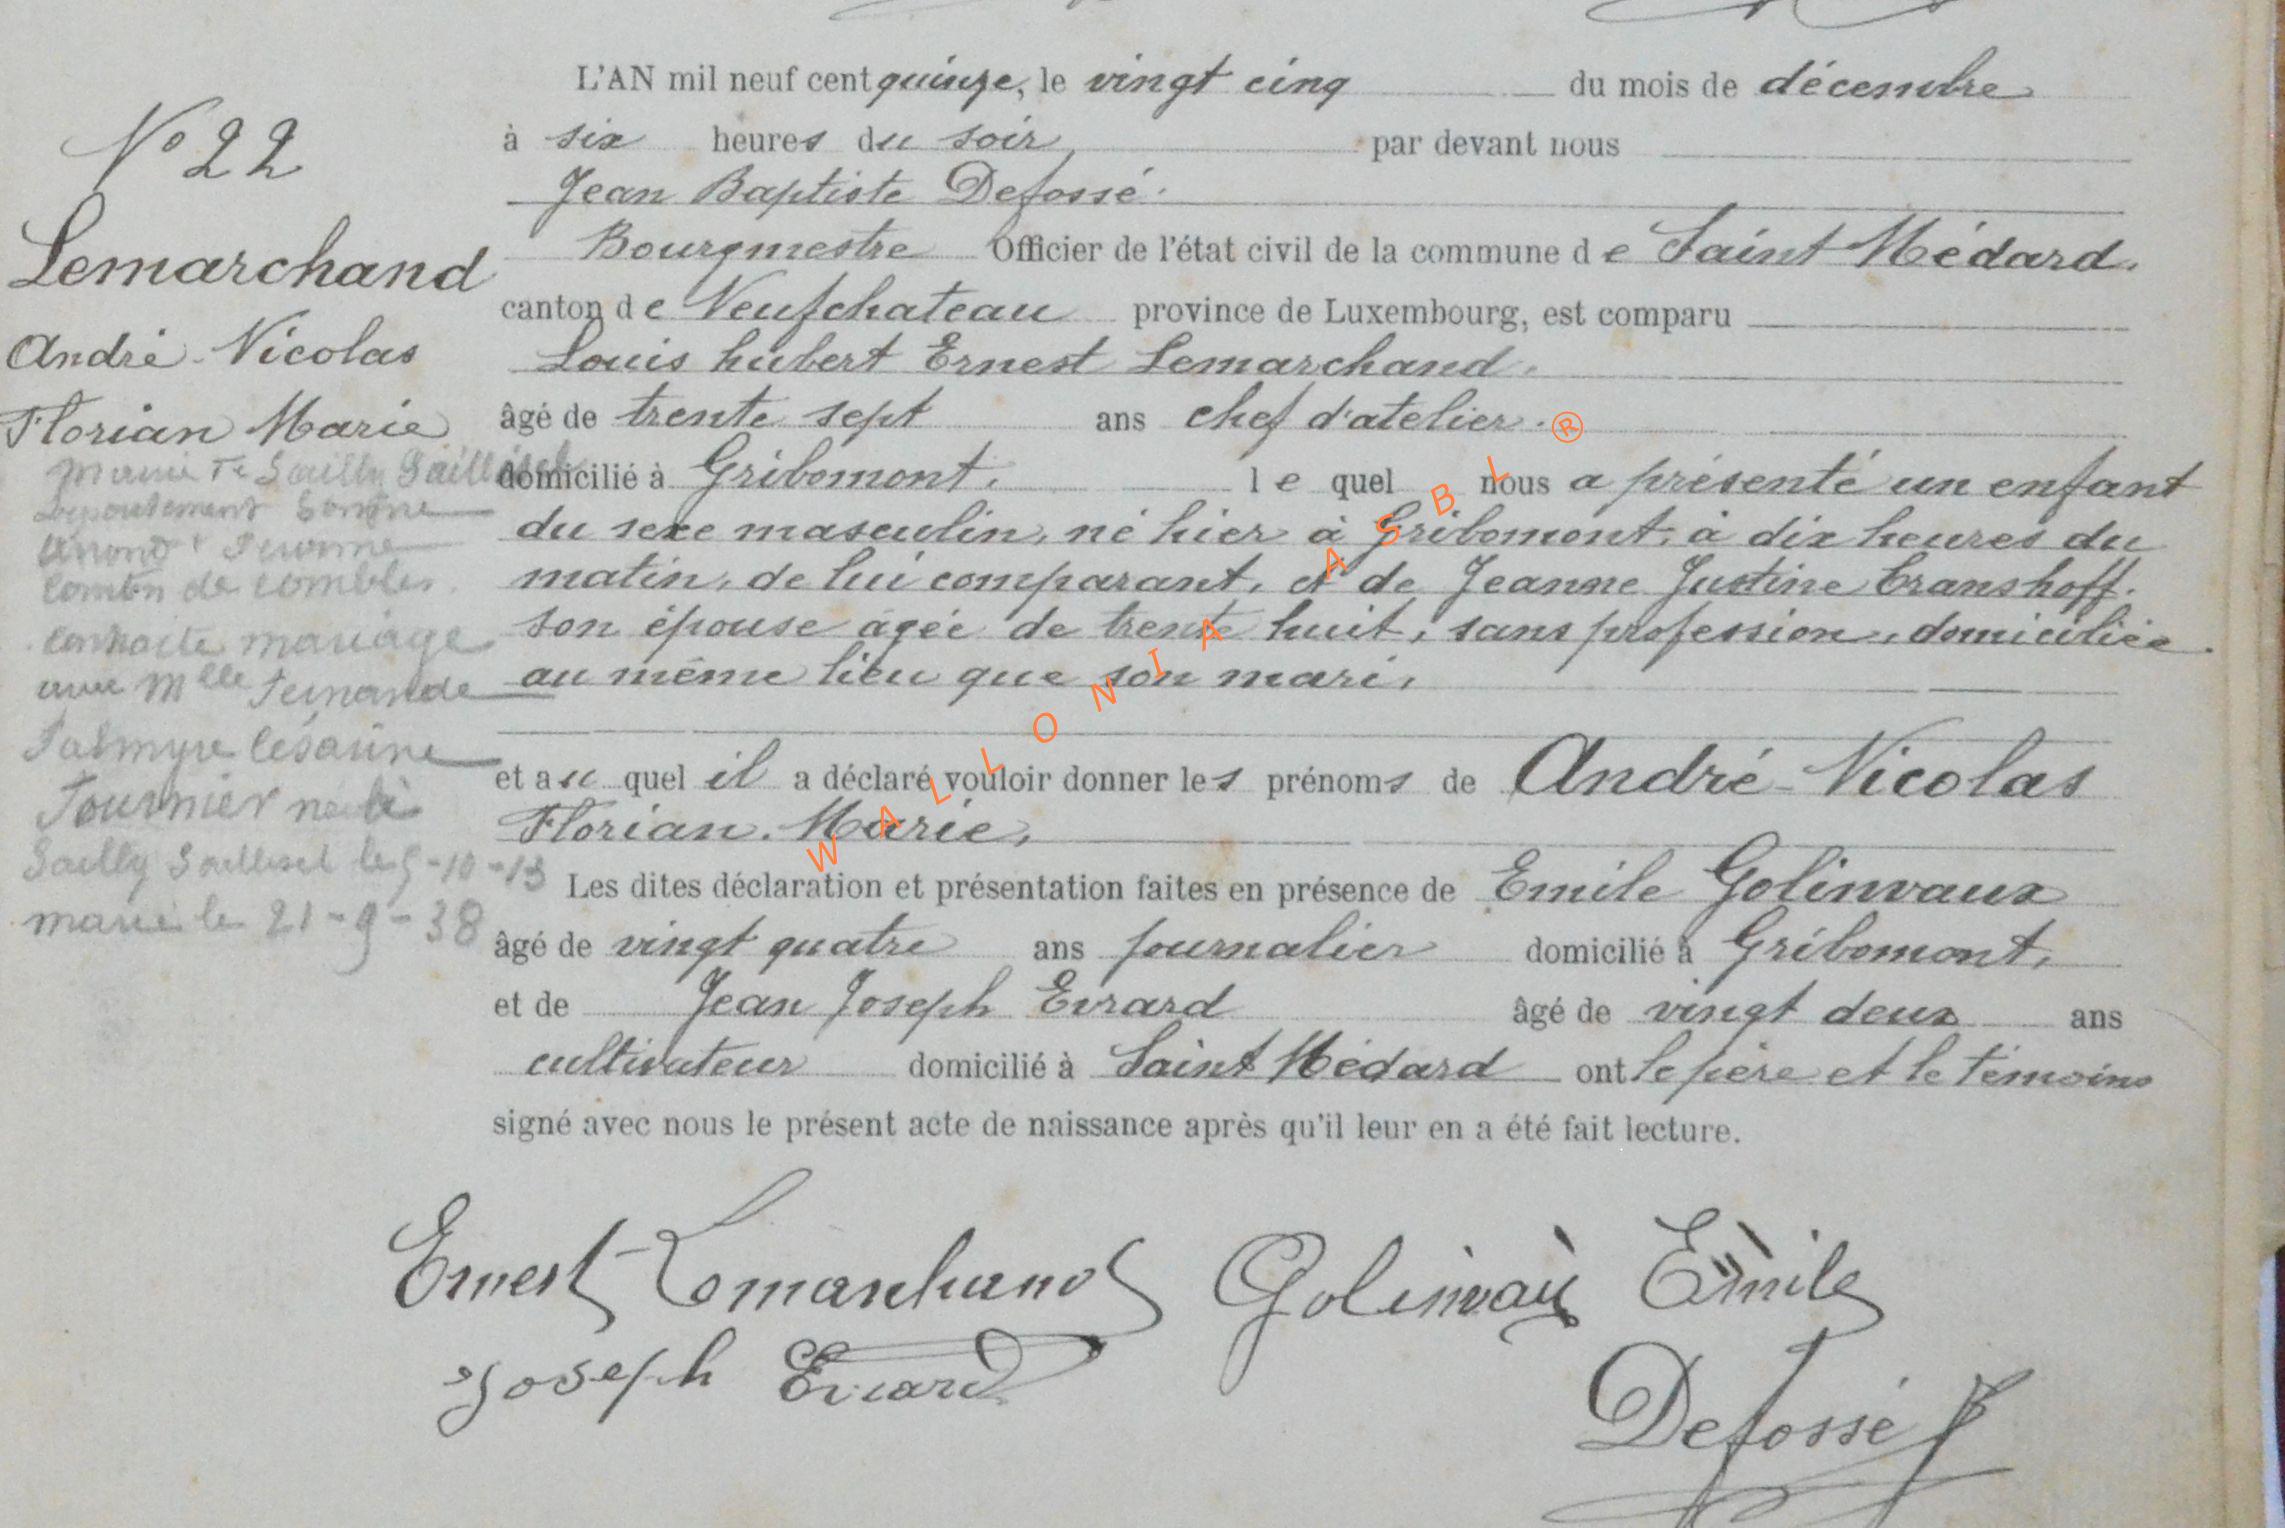 L'AN mil neuf cent quinze, le vingt cinq du mois de décembre
à six heures du soir, par devant nous
Jean Baptiste Defossé.
Bourgmestre Officier de l'état civil de la commune de Saint Médard.
canton de Neufchateau province de Luxembourg, est comparu
Louis hubert Ernest Lemarchand.
âgé de trente sept ans chef d'atelier.
domicilié à Gribomont. le quel nous a présenté un enfant
du sexe masculin, né hier à Gribomont, à dix heures du
matin, de lui comparant, et de Jeanne Justine Cranshoff.
son épouse agée de trente huit, sans profession, domiciliée
au même lieu que son mari,
et au quel il a déclaré vouloir donner les prénoms de André-Nicolas
Florian. Marie,
Les dites déclaration et présentation faites en présence de Emile Golinvaux
âgé de vingt quatre ans journalier domicilié à Gribomont,
et de Jean Joseph Evrard âgé de vingt deux ans
cultivateur domicilié à Saint Médard ont le père et le témoins
signé avec nous le présent acte de naissance après qu'il leur en a été fait lecture.
Ernest Lemarchand Golinvaux Emile
Joseph Evrard
Defossé
N° 22
Lemarchand
André-Nicolas
Florian Marie
Sailly Saillisel
Département Somme
Péronne
Canton de combles.
mariage
avec Mlle Fernande
Palmyre Césarine
Fournier née à
Sailly Saillisel le 5-10-13
marié le 21-9-38
WALLONIA ASBL ®